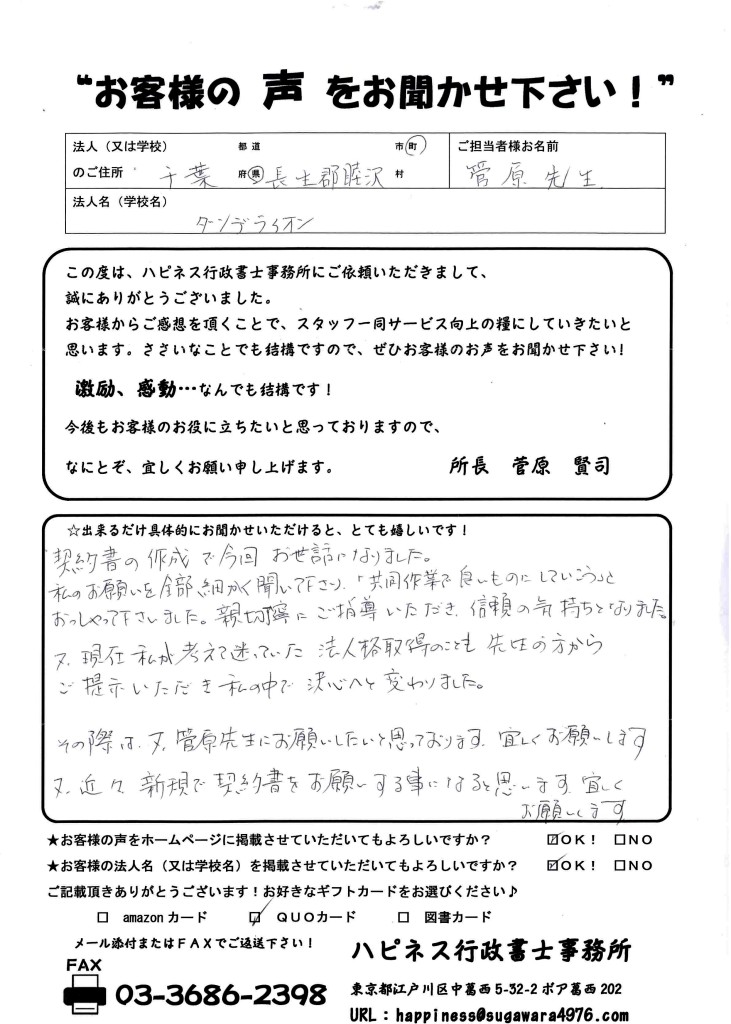 “お客様の 声 をお聞かせ下さい！”
法人（又は学校） 都道 市町 ご担当者様お名前
のご住所 千葉 府県 長生郡睦沢 村 菅原先生
法人名（学校名）
タンデライオン
この度は、ハピネス行政書士事務所にご依頼いただきまして、
誠にありがとうございました。
お客様からご感想を頂くことで、スタッフ一同サービス向上の糧にしていきたいと
思います。ささいなことでも結構ですので、ぜひお客様のお声をお聞かせ下さい！
激励、感動…なんでも結構です！
今後もお客様のお役に立ちたいと思っておりますので、
なにとぞ、宜しくお願い申し上げます。 所長 菅原 賢司
☆出来るだけ具体的にお聞かせいただけると、とても嬉しいです！
契約書の作成で今回お世話になりました。
私のお願いを全部細かく聞いて下さり、「共同作業で良いものにしていこう」と
おっしゃって下さいました。親切丁寧にご指導いただき、信頼の気持ちとなりました。
又、現在私が考えて迷っていた法人格取得のことも先生の方から
ご提示いただき私の中で決心へと変わりました。
その際は、又、菅原先生にお願いしたいと思っております。宜しくお願いします
又、近々新規で契約書をお願いする事になると思います。宜しく
お願いします
★お客様の声をホームページに掲載させていただいてもよろしいですか？ ☑OK！ □NO
★お客様の法人名（又は学校名）を掲載させていただいてもよろしいですか？ ☑OK！ □NO
ご記載頂きありがとうございます！お好きなギフトカードをお選びください♪
□ amazonカード ☑ QUOカード □ 図書カード
メール添付またはFAXでご返送下さい！ ハピネス行政書士事務所
FAX
03-3686-2398 東京都江戸川区中葛西5-32-2ボア葛西202
URL：happiness@sugawara4976.com